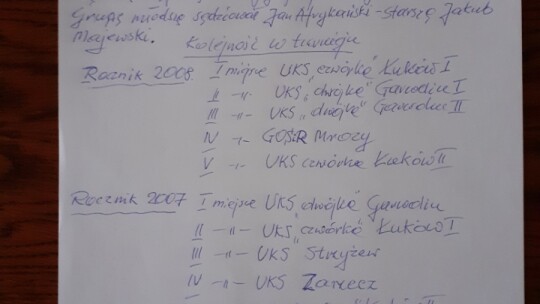 Grupę młodszą sędziował Jan Afrykański - starszą Jakub
Majewski.
Kolejność w turnieju
Rocznik 2008. I miejsce UKS „czwórka” Łuków I
II -"- UKS „dwójka” Garwolin I
III -"- UKS „dwójka” Garwolin II
IV -"- GOSiR Mrozy
V -"- UKS czwórka Łuków II
Rocznik 2007 I miejsce UKS „dwójka” Garwolin
II -"- UKS „czwórka” Łuków I
III -"- UKS Strzyżew
IV -"- UKS Zarzecz